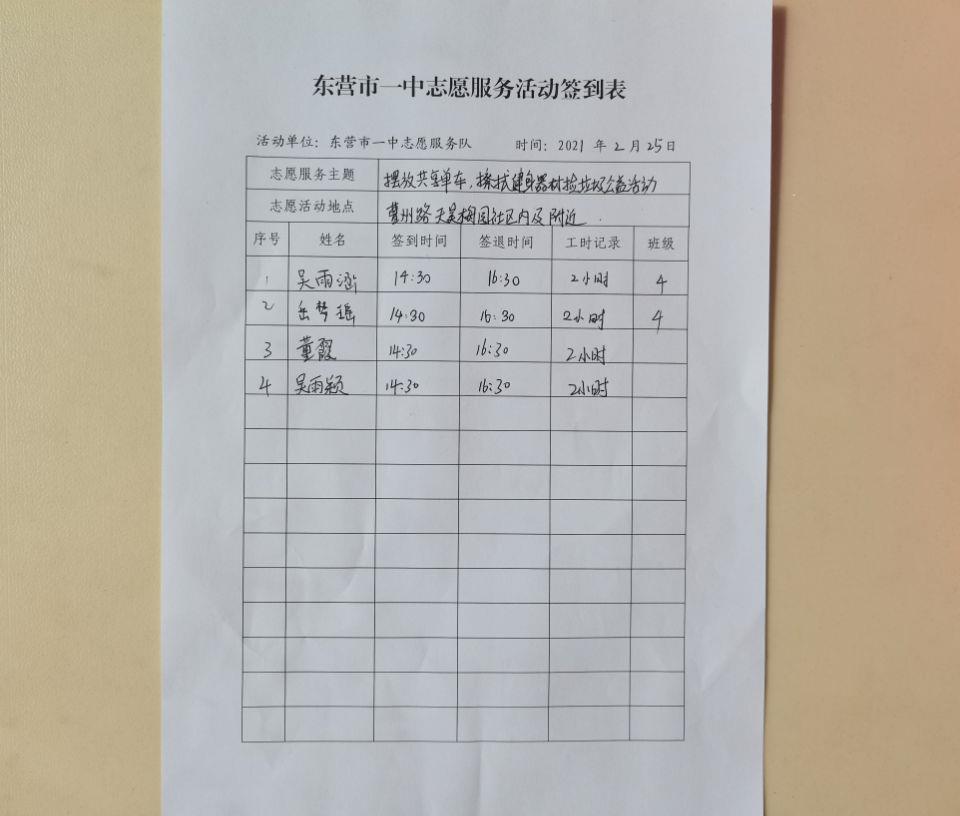 东营市一中志愿服务活动签到表
活动单位：东营市一中志愿服务队 时间：2021 年 2 月 25日
志愿服务主题 摆放共享单车，擦拭健身器材捡垃圾公益活动
志愿活动地点 曹州路天吴梅园社区内及附近.
序号 姓名 签到时间 签退时间 工时记录 班级
1 吴雨涵 14:30 16:30 2小时 4
2 岳梦瑶 14:30 16:30 2小时 4
3 董霞 14:30 16:30 2小时
4 吴雨颖 14:30 16:30 2小时